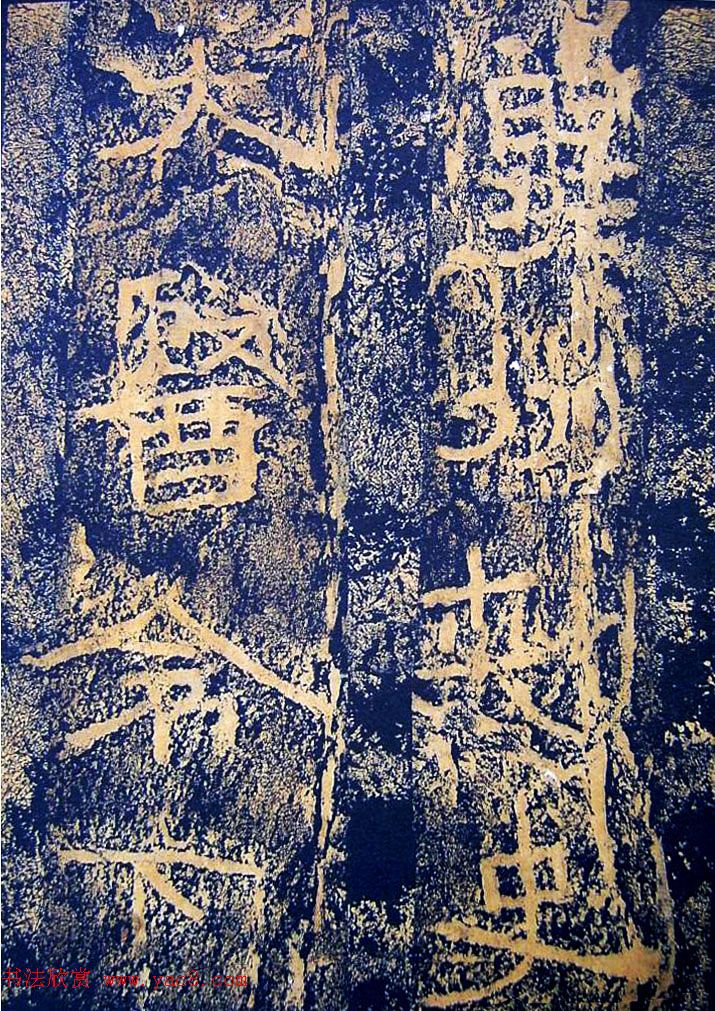 冀州刺史
大醫令下
书法欣赏 www.yac8.com